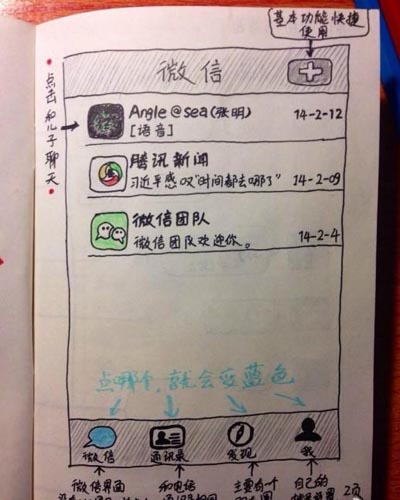 基本功能快捷
使用
微信
点击和儿子聊天
Angle@sea(张明)
14-2-12
[语音]
腾讯新闻
习近平感叹"时间都去哪了"
14-2-09
微信团队
微信团队欢迎你。
14-2-4
点哪个,就会变蓝色
微信
通讯录
发现
我
微信界面
和电信
主要有个
自己的
2页